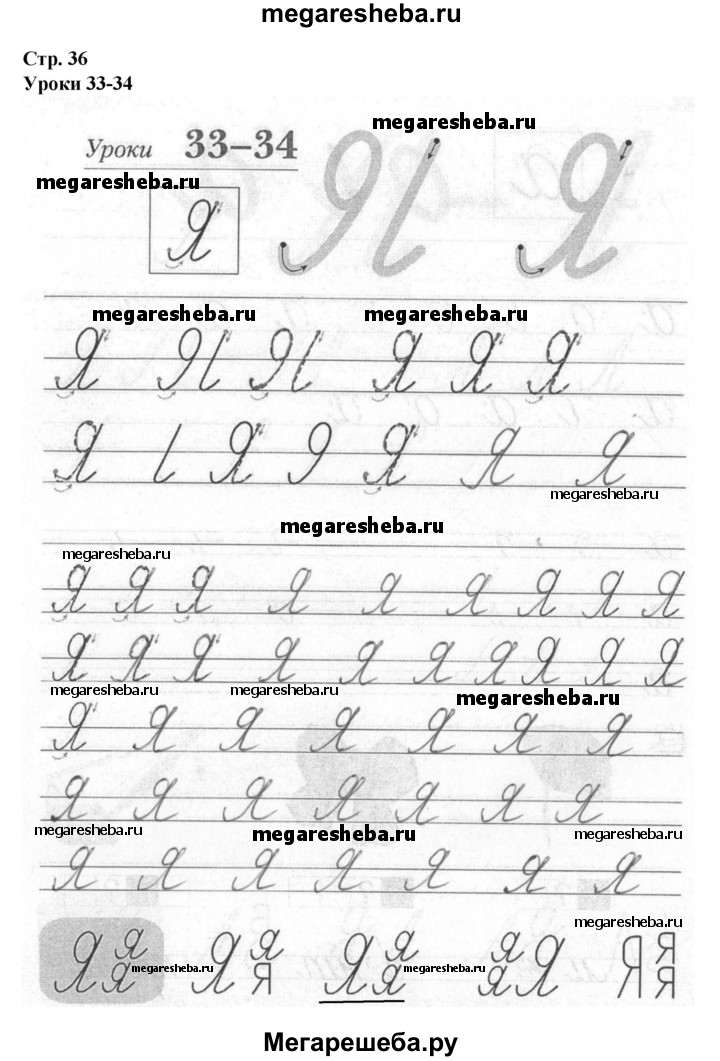 megaresheba.ru
Стр. 36
Уроки 33-34
megaresheba.ru
Уроки 33–34
Я Я
megaresheba.ru
Я
megaresheba.ru megaresheba.ru
Я Я Я Я Я Я
Я Я Я Я Я
megaresheba.ru
megaresheba.ru
megaresheba.ru
Я Я Я Я Я Я Я Я Я
Я Я Я Я Я Я Я Я Я Я
megaresheba.ru megaresheba.ru megaresheba.ru
Я Я Я Я Я Я Я
Я Я Я Я Я Я Я
megaresheba.ru megaresheba.ru megaresheba.ru
Я Я Я Я Я Я Я
megaresheba.ru
Я я я Я я я Я я я я я Я Я я я
megaresheba.ru megaresheba.ru
Мегарешеба.ру